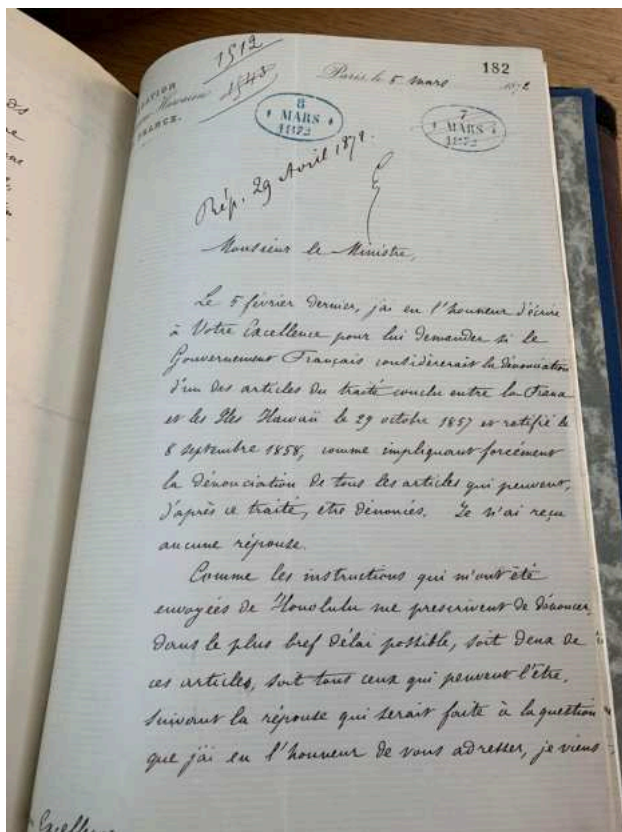 182
1512
1548
Paris, le 5 mars 1872
FRANCE.
8
MARS
1872
7
MARS
1872
Rép. 29 Avril 1872.
Monsieur le Ministre,
Le 5 février dernier, j'ai eu l'honneur d'écrire
à Votre Excellence pour lui demander si le
Gouvernement Français considèrerait la dénonciation
d'un des articles du traité conclu entre la France
et les Iles Hawaii le 29 octobre 1857 et ratifié le
8 septembre 1858, comme impliquant forcément
la dénonciation de tous les articles qui peuvent,
d'après ce traité, être dénoncés. Je n'ai reçu
aucune réponse.
Comme les instructions qui m'ont été
envoyées de Honolulu me prescrivent de dénoncer,
dans le plus bref délai possible, soit deux de
ces articles, soit tous ceux qui peuvent l'être,
suivant la réponse qui serait faite à la question
que j'ai eu l'honneur de vous adresser, je viens